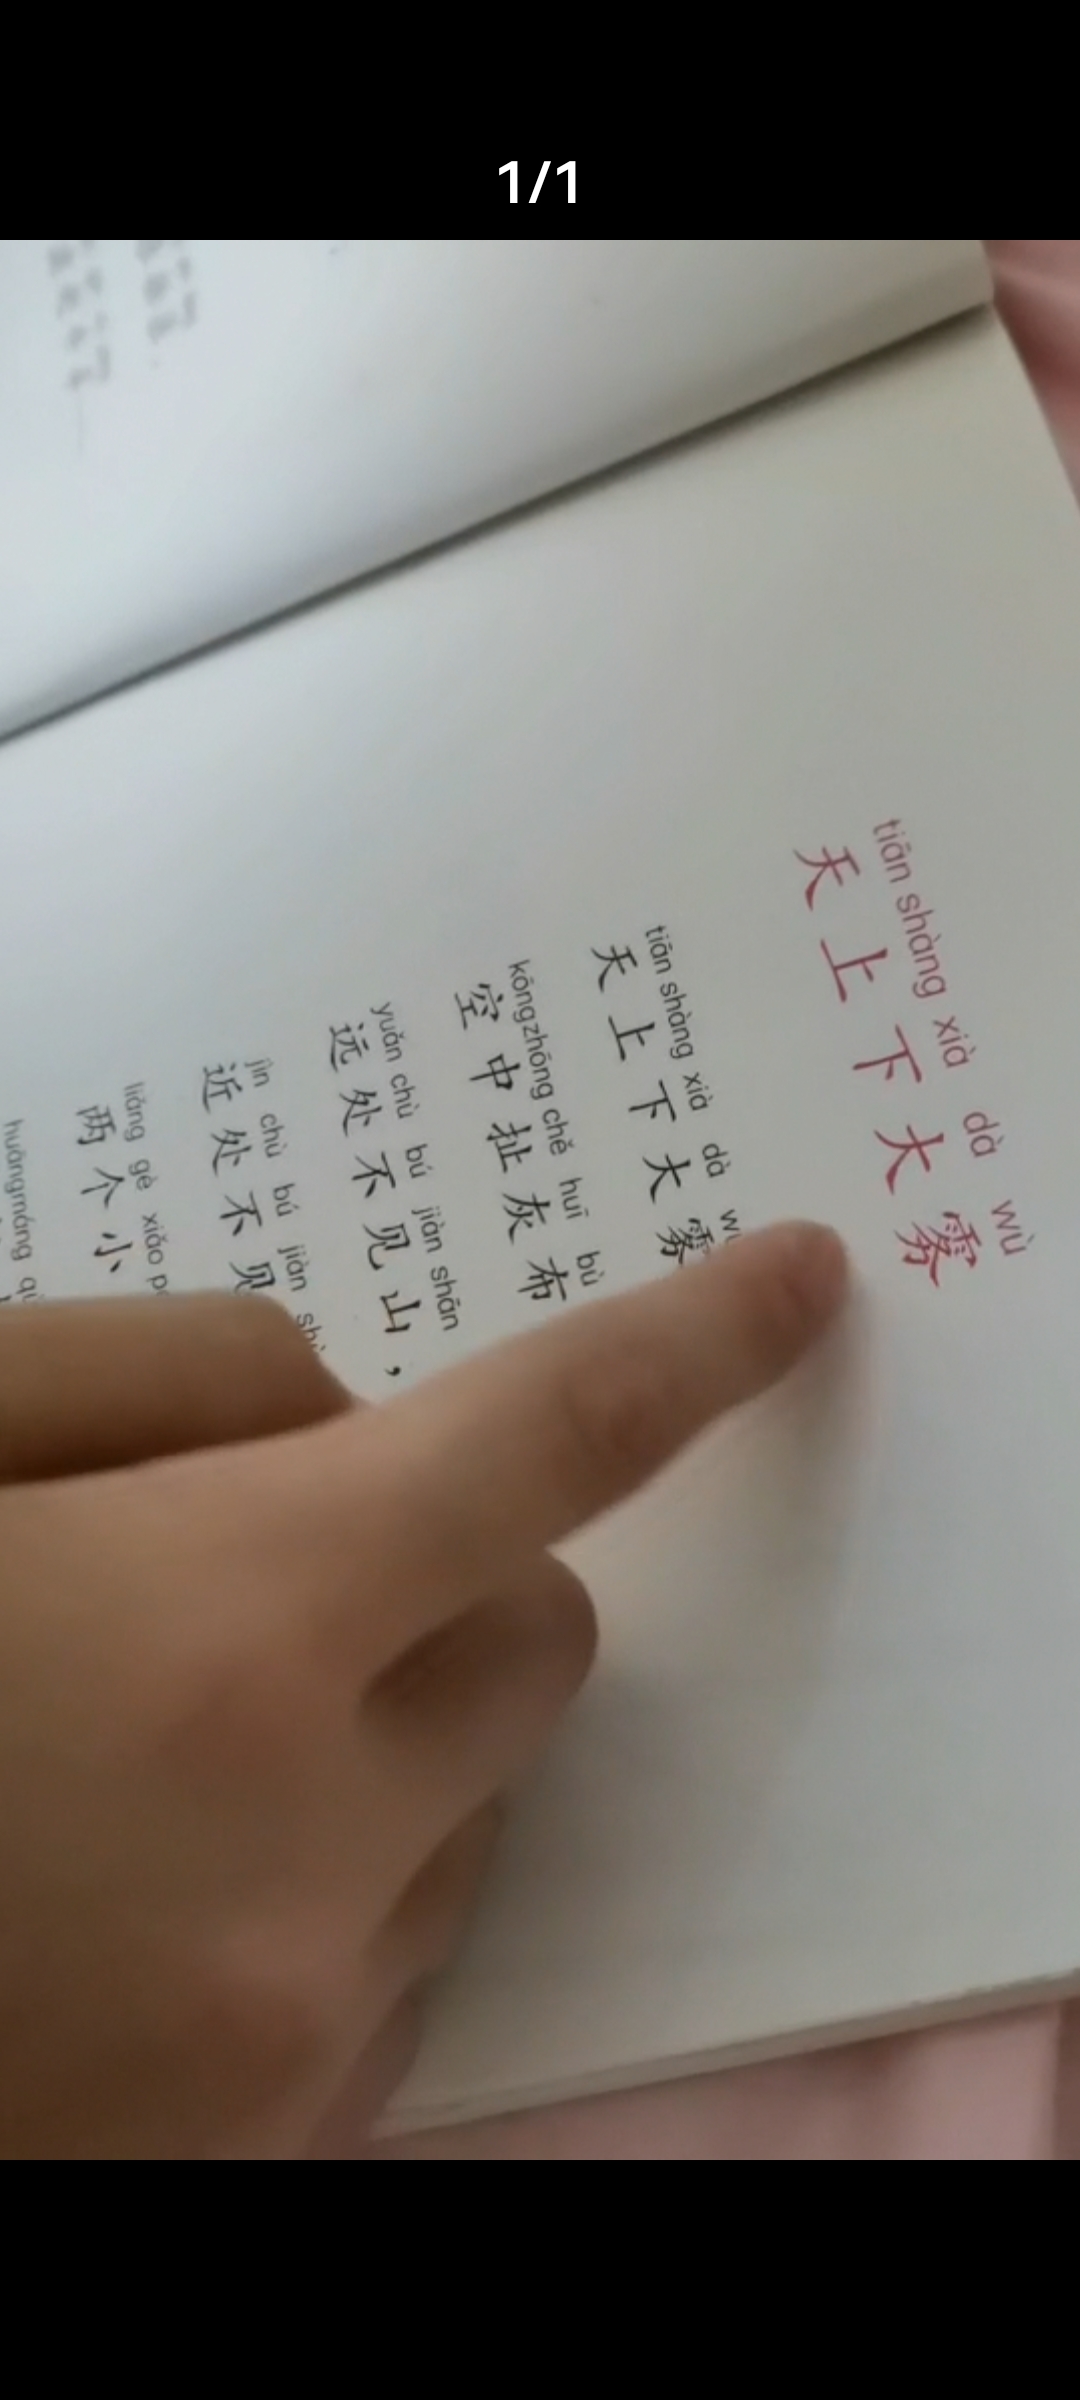 1/1
tiān shàng xià dà wù
天上下大雾
tiān shàng xià dà
天上下大雾
kōngzhōng chě huī bù
空中扯灰布
yuǎn chù bú jiàn shān
远处不见山，
jìn chù bú jiàn
近处不见
liǎng gè xiǎo
两个小
huāngmáng